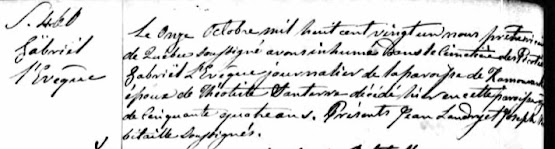 S. 460
Gabriel
l'Evêque
Le Onze Octobre mil huit cent vingt un nous prêtre vicaire
de Québec soussigné avons inhumé dans le Cimetière des
Gabriel L'Evêque journalier de la paroisse de
époux de Théotiste décédé hier en cette paroisse agé
de Cinquante quatre ans. Présents Jean Landry et Joseph
soussignés.